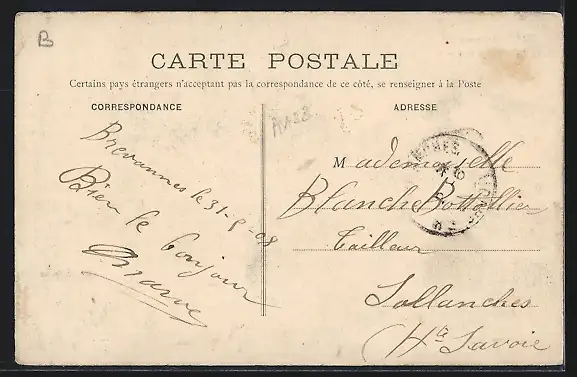 B
CARTE POSTALE
Certains pays étrangers n'acceptant pas la correspondance de ce côté, se renseigner à la Poste
CORRESPONDANCE
Brevannes le 31-8-08
Bien le bonjour
ADRESSE
Mademoiselle
Blanche Bottollier
Tailleur
Sallanches
Hte Savoie